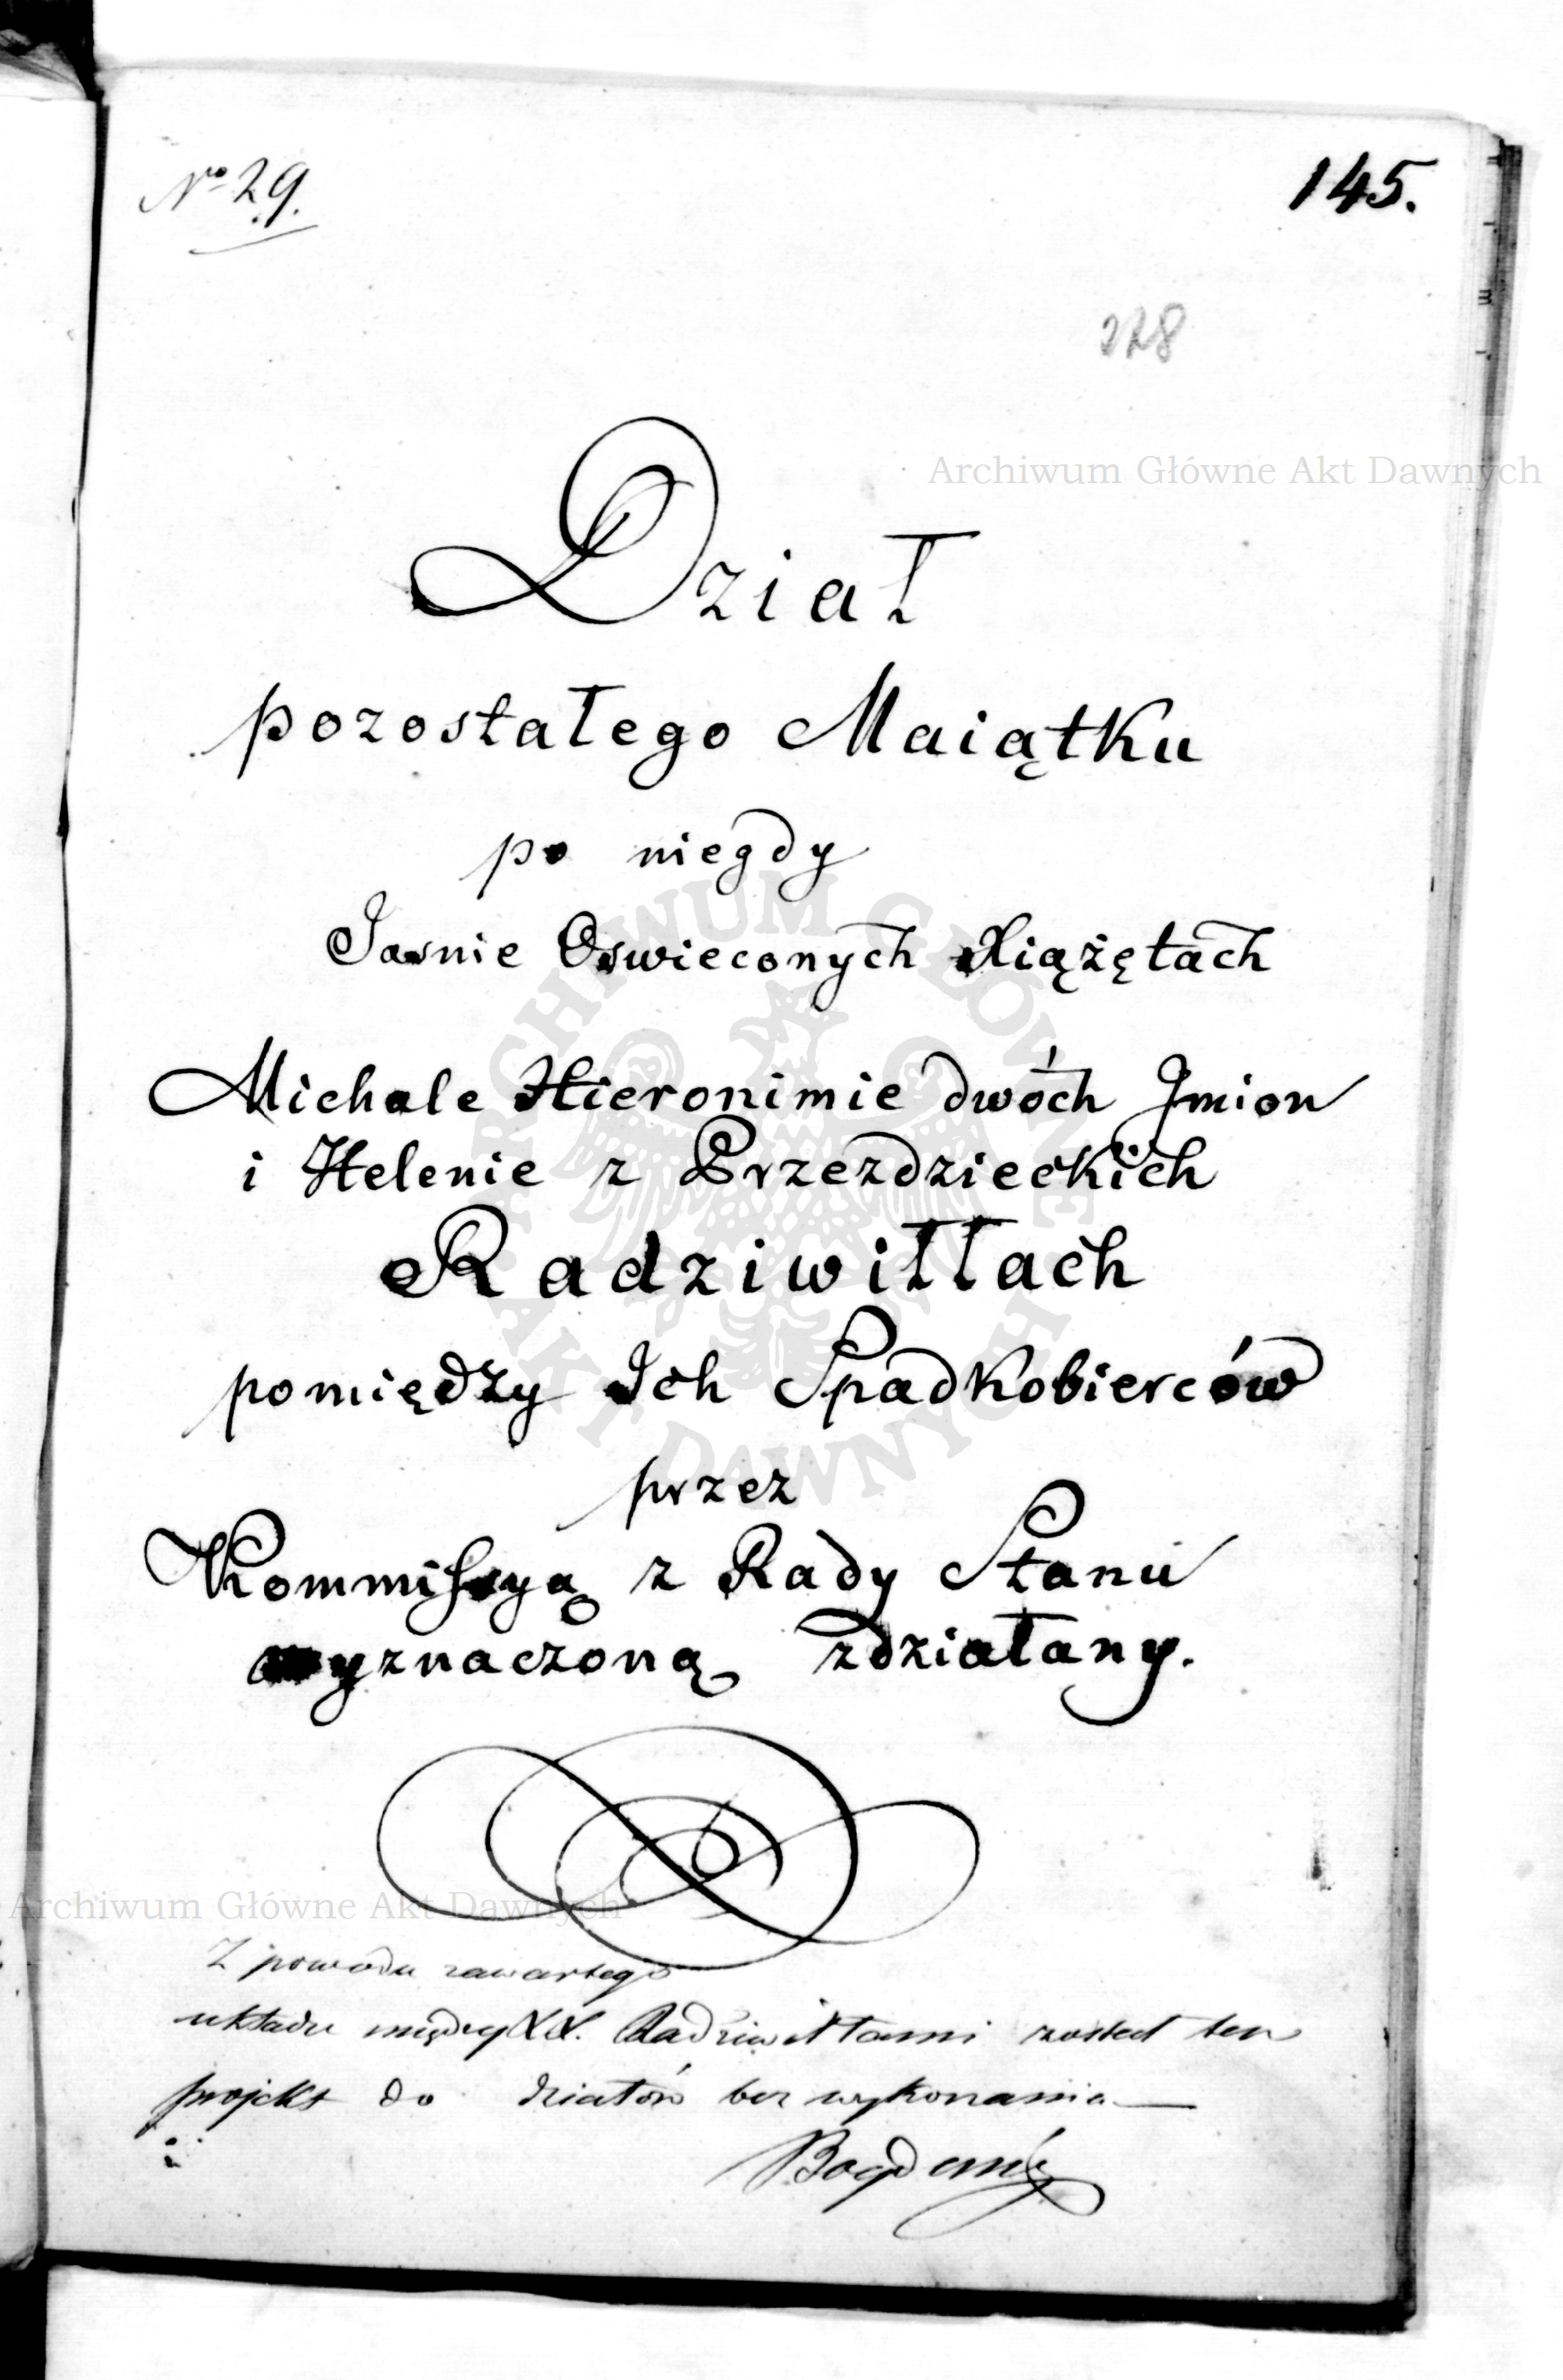 No 29.
145.
228
Archiwum Główne Akt Dawnych
Dział
pozostałego Maiątku
po niegdy
Jasnie Oswieconych Xiążętach
Michale Hieronimie dwóch Jmion
i Helenie z Przezdzieckich
Radziwiłłach
pomiędzy Ich Spadkobierców
przez
Kommissyą z Rady Stanu
wyznaczoną zdziałany.
ARCHIWUM GŁÓWNE
AKT DAWNYCH
Archiwum Główne Akt Dawnych
Z powodu zawartego
układu między XX. Radziwiłłami został ten
projekt do działów bez wykonania —